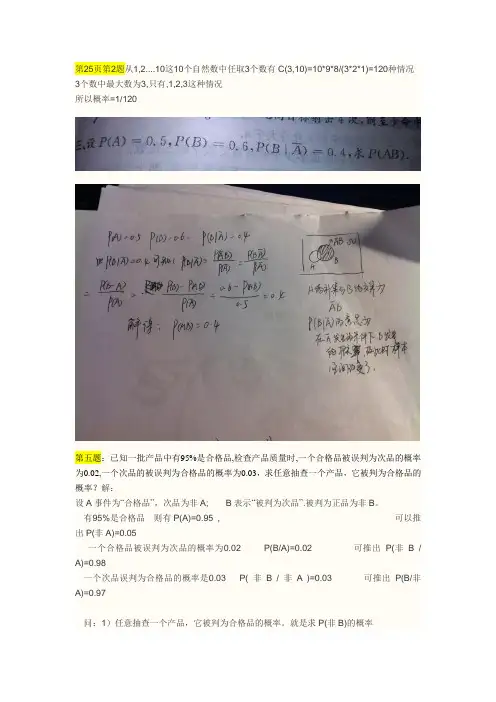 第25页第2题从1,2....10这10个自然数中任取3个数有 C(3,10)=10*9*8/(3*2*1)=120种情况
3个数中最大数为3,只有,1,2,3这种情况
所以概率=1/120
三.设 P(A) = 0.5, P(B) = 0.6, P(B | A̅) = 0.4, 求 P(AB).
P(A)=0.5 P(B)=0.6 P(B|A̅)=0.4
由P(B|A̅)=0.4可知: P(B|A̅)= P(A̅B)/P(A̅) = P(BA̅)/P(A̅)
= P(B-A)/P(A̅) = P(B)-P(AB)/P(A̅) = 0.6-P(AB)/0.5 =0.4
解得: P(AB)=0.4
A
B
A̅B
P(B|A̅)的意思为
第五题：已知一批产品中有95%是合格品,检查产品质量时,一个合格品被误判为次品的概率
为0.02,一个次品的被误判为合格品的概率为0.03，求任意抽查一个产品，它被判为合格品的
概率？解：
设 A 事件为“合格品”，次品为非 A; B 表示“被判为次品”.被判为正品为非 B。
有95%是合格品 则有 P(A)=0.95 , 可以推
出 P(非 A)=0.05
一个合格品被误判为次品的概率为0.02 P(B/A)=0.02 可推出 P(非 B /
A)=0.98
一个次品误判为合格品的概率是0.03 P( 非 B / 非 A )=0.03 可推出 P(B/非
A)=0.97
问：1）任意抽查一个产品，它被判为合格品的概率。就是求 P(非 B)的概率